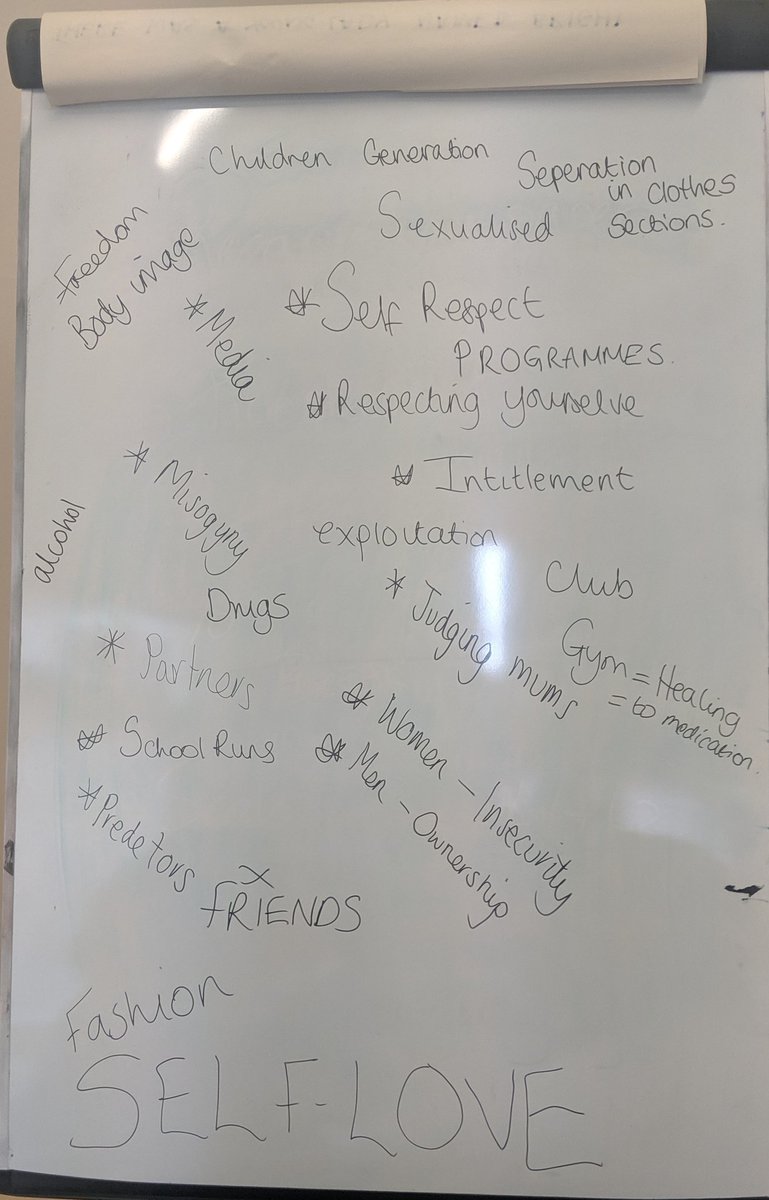 Children Generation
Seperation
in clothes
sections.
Sexualised
Freedom
Body image
* Media
* Self Respect
PROGRAMMES.
* Respecting yourselve
* Intitlement
* Misogyny
alcohol
exploitation
Club
Drugs
* Judging mums
Gym = Healing
= to medication.
* Partners
* School Runs
* Women - Insecurity
* Men - Ownership
* Predetors
x
FRIENDS
Fashion
SELF-LOVE